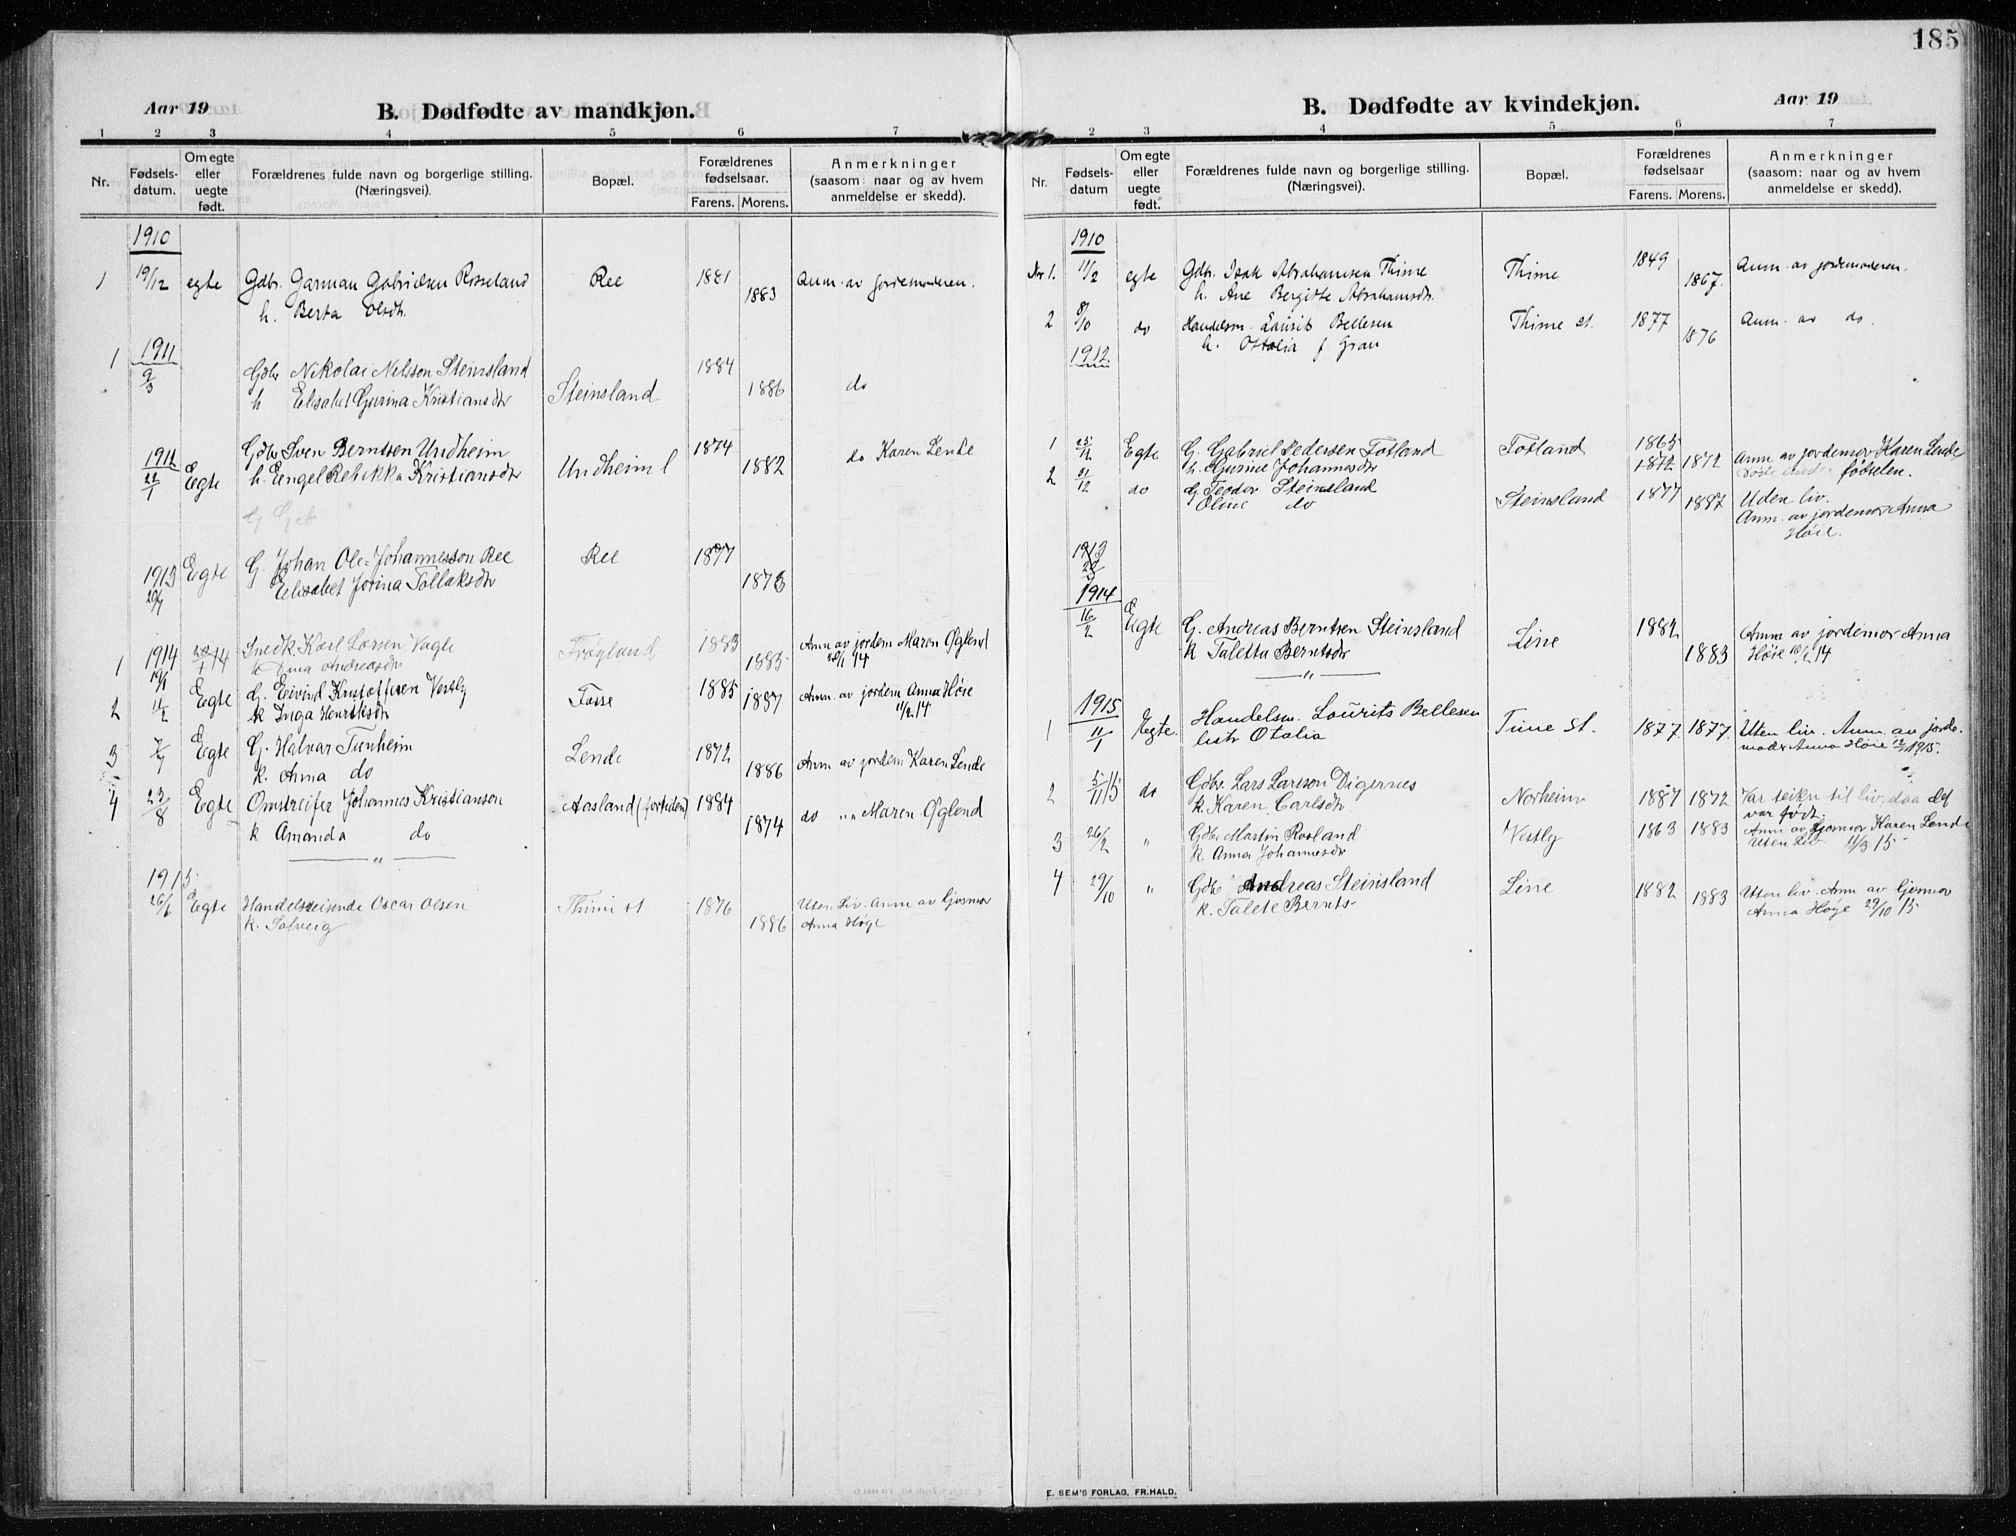 185
Aar 19
B. Dødfødte av mandkjøn.
1 2 3 4 5 6 7
Nr.
Fødsels-
datum.
Om egte
eller
uegte
født.
Forældrenes fulde navn og borgerlige stilling.
(Næringsvei).
Bopæl.
Forældrenes
fødselsaar.
Farens. Morens.
Anmerkninger
(saasom: naar og av hvem
anmeldelse er skedd).
1910
1 19/12 egte Gdbr. Garman Gabrielsen Rosseland Ree 1881 Anm. av jordemoderen.
h. Berta Olsdtr. 1883
1 1911
9/3 Gdbr Nikolai Nilsson Steinsland 1884
h Elisabet Gurina Kristiansdtr Steinsland 1886 do
Gdbr Sven Berntsen Undheim 1874 do Karen Lende
22/1 Egte h. Engel Rebikka Kristiansdtr Undheim 1882
G. Johan Ole Johannesson Ree Ree 1877
1913 Egte Elisabet Jorina Tollaksdtr 1873
20/7
1 1914 Snedk Karl Larsen Vagle Frøyland 1883 Anm av jordem Maren Øglend
19/1 Andreasdtr 1885 20/1 14
2 11/2 Egte G. Eivind Kristoffersen Vestly Fosse 1885 Anm. av jordem Anna Høie
k Inga Henriksdtr 1887 11/2 14
3 7/7 Egte G. Halvar Tunheim Lende 1872 Anm av jordem Karen Lende
k. Anna do 1886
4 23/8 Egte Omstreifer Johannes Kristianson Aasland (fortiden) 1884 do " " Maren Øglend
k Amanda do 1874
"
1915
26/6 Egte Handelsreisende Oscar Olsen Thime st 1876 Uten Liv. Anm av Gjormor
k. Solveig 1886 Anna Høye
B. Dødfødte av kvindekjøn.
Aar 19
2 3 4 5 6 7
Nr.
Fødsels-
datum
Om egte
eller
uegte
født.
Forældrenes fulde navn og borgerlige stilling.
(Næringsvei).
Bopæl.
Forældrenes
fødselsaar
Farens. Morens.
Anmerkninger
(saasom: naar og av hvem
anmeldelse er skedd).
1910
Nr 1. 11/2 egte Gdbr. Isak Abrahamsen Thime Thime 1849 Anm. av jordemoderen.
h. Ane Bergitte Abrahamsdtr. 1867.
2 8/10 do Handelsm. Laurits Bellesen Thime st. 1877 Anm. av do.
h. Ottalia f Gran 1876
1912
1 25/12 Egte G. Gabriel Pedersen Totland Totland 1865 Anm av jordemor Karen Lende
h. Gurine Johannesdtr 1872 1872 fødselen.
2 31/12 do G. Teodor Steinsland Steinsland 1877 Uden liv.
Oline do 1887 Anm. av jordemor Anna
Høie.
1913
1914
16/2 Egte G. Andreas Berntsen Steinsland Line 1882 Anm av jordemor Anna
k Taletta Berntsdtr 1883 Høie 14
"
1915
1 11/1 Egte. Handelsm. Lourits Bellesen Time St. 1877 1877 Uten liv. Anm. av jorde-
Otalia moder Anna Høie 1915.
2 5/11 15 do Gdbr. Lars Larsson Digernes Norheim 1887 1872 Var teikn til liv. daa det
k. Karen Carlsdtr var født.
3 26/2 " Gdbr Martin Rosland Vestly 1863 1883 Anm av Gjormor Karen Lende
k. Anna Johannesdtr Uten Liv. 11/3 15
4 29/10 " Gdbr Andreas Steinsland Line 1882 1883 Uten liv. Anm av Gjormor
k. Talete Bernts- Anna Høye 29/10 15
E. SEM'S FORLAG, FR. HALD.